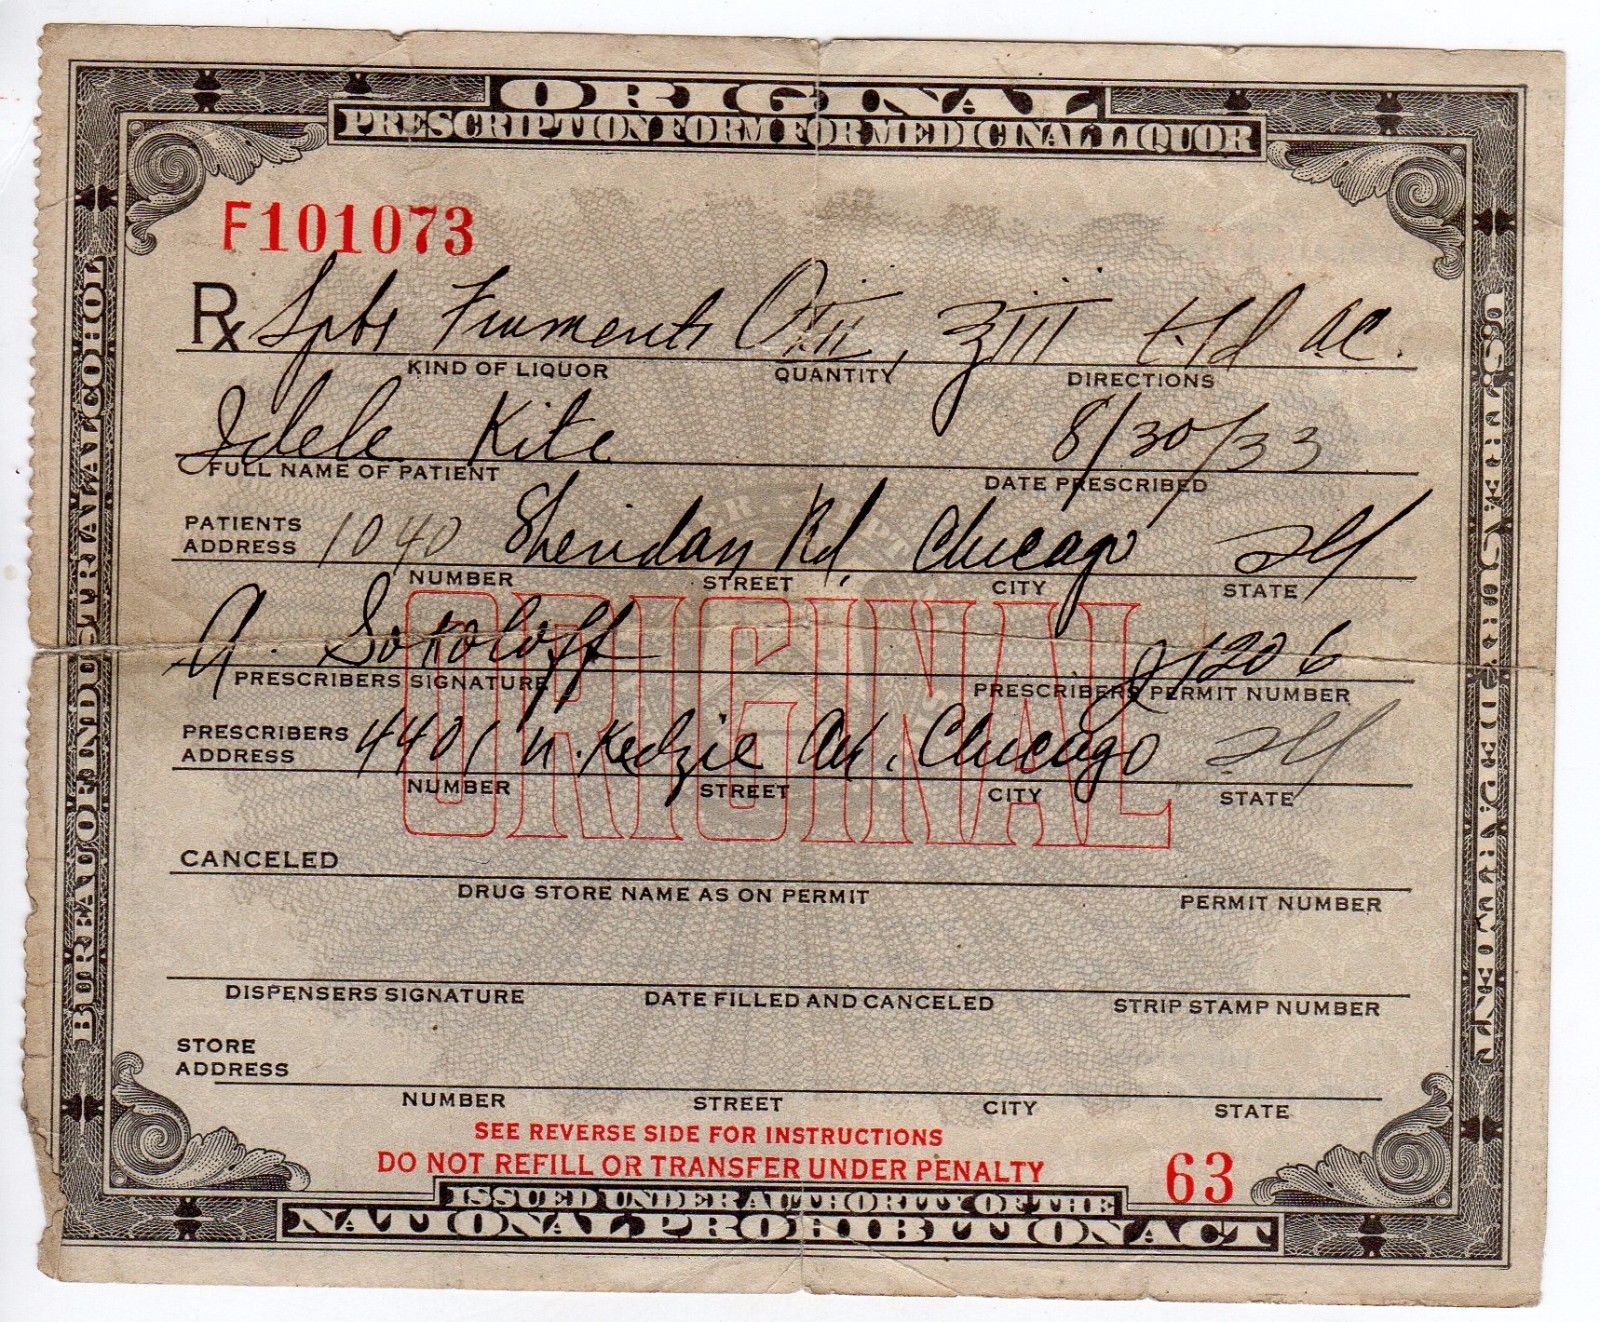 ORIGINAL
PRESCRIPTION FORM FOR MEDICINAL LIQUOR
F101073
Rx Spts Frumenti Oii, ʒiii t.i.d ac.
KIND OF LIQUOR QUANTITY DIRECTIONS
Idele Kite 8/30/33
FULL NAME OF PATIENT DATE PRESCRIBED
PATIENTS ADDRESS 1040 Sheridan Rd, Chicago Ill
NUMBER STREET CITY STATE
A. Sokoloff 21206
PRESCRIBERS SIGNATURE PRESCRIBERS PERMIT NUMBER
PRESCRIBERS ADDRESS 4401 N. Kedzie Av. Chicago Ill
NUMBER STREET CITY STATE
ORIGINAL
CANCELED
DRUG STORE NAME AS ON PERMIT PERMIT NUMBER
DISPENSERS SIGNATURE DATE FILLED AND CANCELED STRIP STAMP NUMBER
STORE ADDRESS
NUMBER STREET CITY STATE
SEE REVERSE SIDE FOR INSTRUCTIONS
DO NOT REFILL OR TRANSFER UNDER PENALTY
63
ISSUED UNDER AUTHORITY OF THE
NATIONAL PROHIBITION ACT
BUREAU OF INDUSTRIAL ALCOHOL
U.S. TREASURY DEPARTMENT